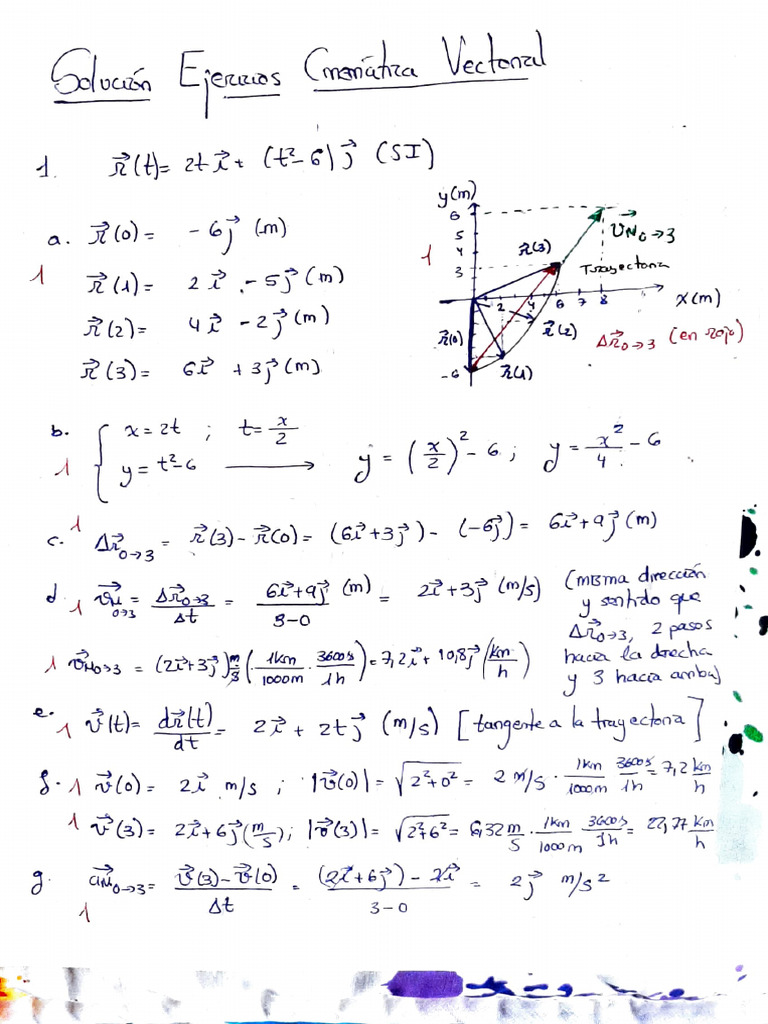 Solución Ejercicios Cinemática Vectorial
1. r⃗(t)= 2t i⃗ + (t²-6) j⃗ (SI)
a. r⃗(0)= -6j⃗ (m)
1 r⃗(1)= 2i⃗ -5j⃗ (m)
r⃗(2)= 4i⃗ -2j⃗ (m)
r⃗(3)= 6i⃗ +3j⃗ (m)
1
y(m)
6
5
4
3
-6
2 4 6 7 8
x(m)
r⃗(0)
r⃗(1)
r⃗(2)
r⃗(3)
v⃗M0→3
Trayectoria
Δr⃗0→3 (en rojo)
b. { x=2t ; t= x/2
1 { y=t²-6 ⟶ y=(x/2)²-6 ; y= x²/4 -6
c. 1 Δr⃗0→3 = r⃗(3)-r⃗(0)= (6i⃗+3j⃗)- (-6j⃗)= 6i⃗+9j⃗ (m)
d 1 v⃗M0→3 = Δr⃗0→3/Δt = (6i⃗+9j⃗)/(3-0) (m) = 2i⃗+3j⃗ (m/s)
(misma dirección
y sentido que
Δr⃗0→3, 2 pasos
hacia la derecha
y 3 hacia arriba)
1 v⃗M0→3 = (2i⃗+3j⃗) m/s (1km/1000m · 3600s/1h)=7,2i⃗+10,8j⃗ (km/h)
e. 1 v⃗(t)= dr⃗(t)/dt = 2i⃗ + 2t j⃗ (m/s) [tangente a la trayectoria]
f. 1 v⃗(0)= 2i⃗ m/s ; |v⃗(0)|= √(2²+0²) = 2 m/s · 1km/1000m 3600s/1h = 7,2 km/h
1 v⃗(3)= 2i⃗+6j⃗ (m/s); |v⃗(3)|= √(2²+6²)= 6,32 m/s · 1km/1000m 3600s/1h = 22,77 km/h
g. 1 a⃗M0→3 = (v⃗(3)-v⃗(0))/Δt = ((2i⃗+6j⃗)-2i⃗)/(3-0) = 2j⃗ m/s²